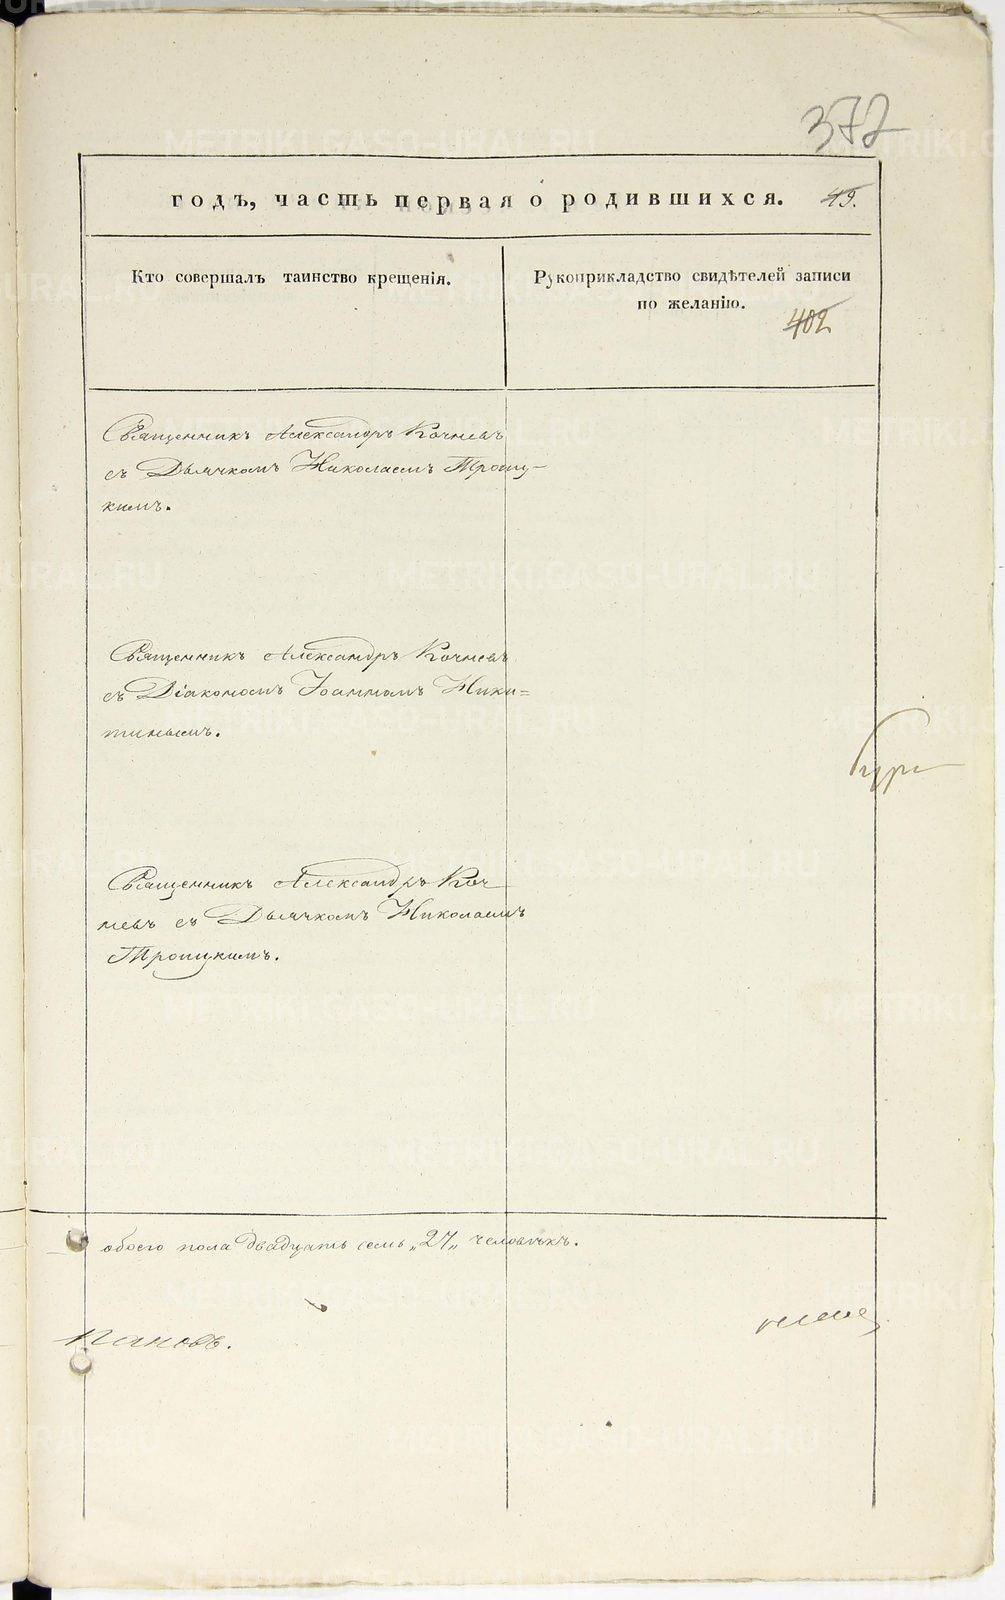 372
годъ, часть первая о родившихся. 49.
Кто совершалъ таинство крещенія.
Рукоприкладство свидѣтелей записи
по желанію.
402
Священникъ Александръ Кочневъ
съ Дьячкомъ Николаемъ Троиц-
кимъ.
Священникъ Александръ Кочневъ
съ Діакономъ Іоанномъ Ники=
тинымъ.
Священникъ Александръ Коч
невъ съ Дьячкомъ Николаемъ
Троицкимъ.
обоего пола двадцать семь „27„ человѣкъ.
METRIKI.GASO-URAL.RU